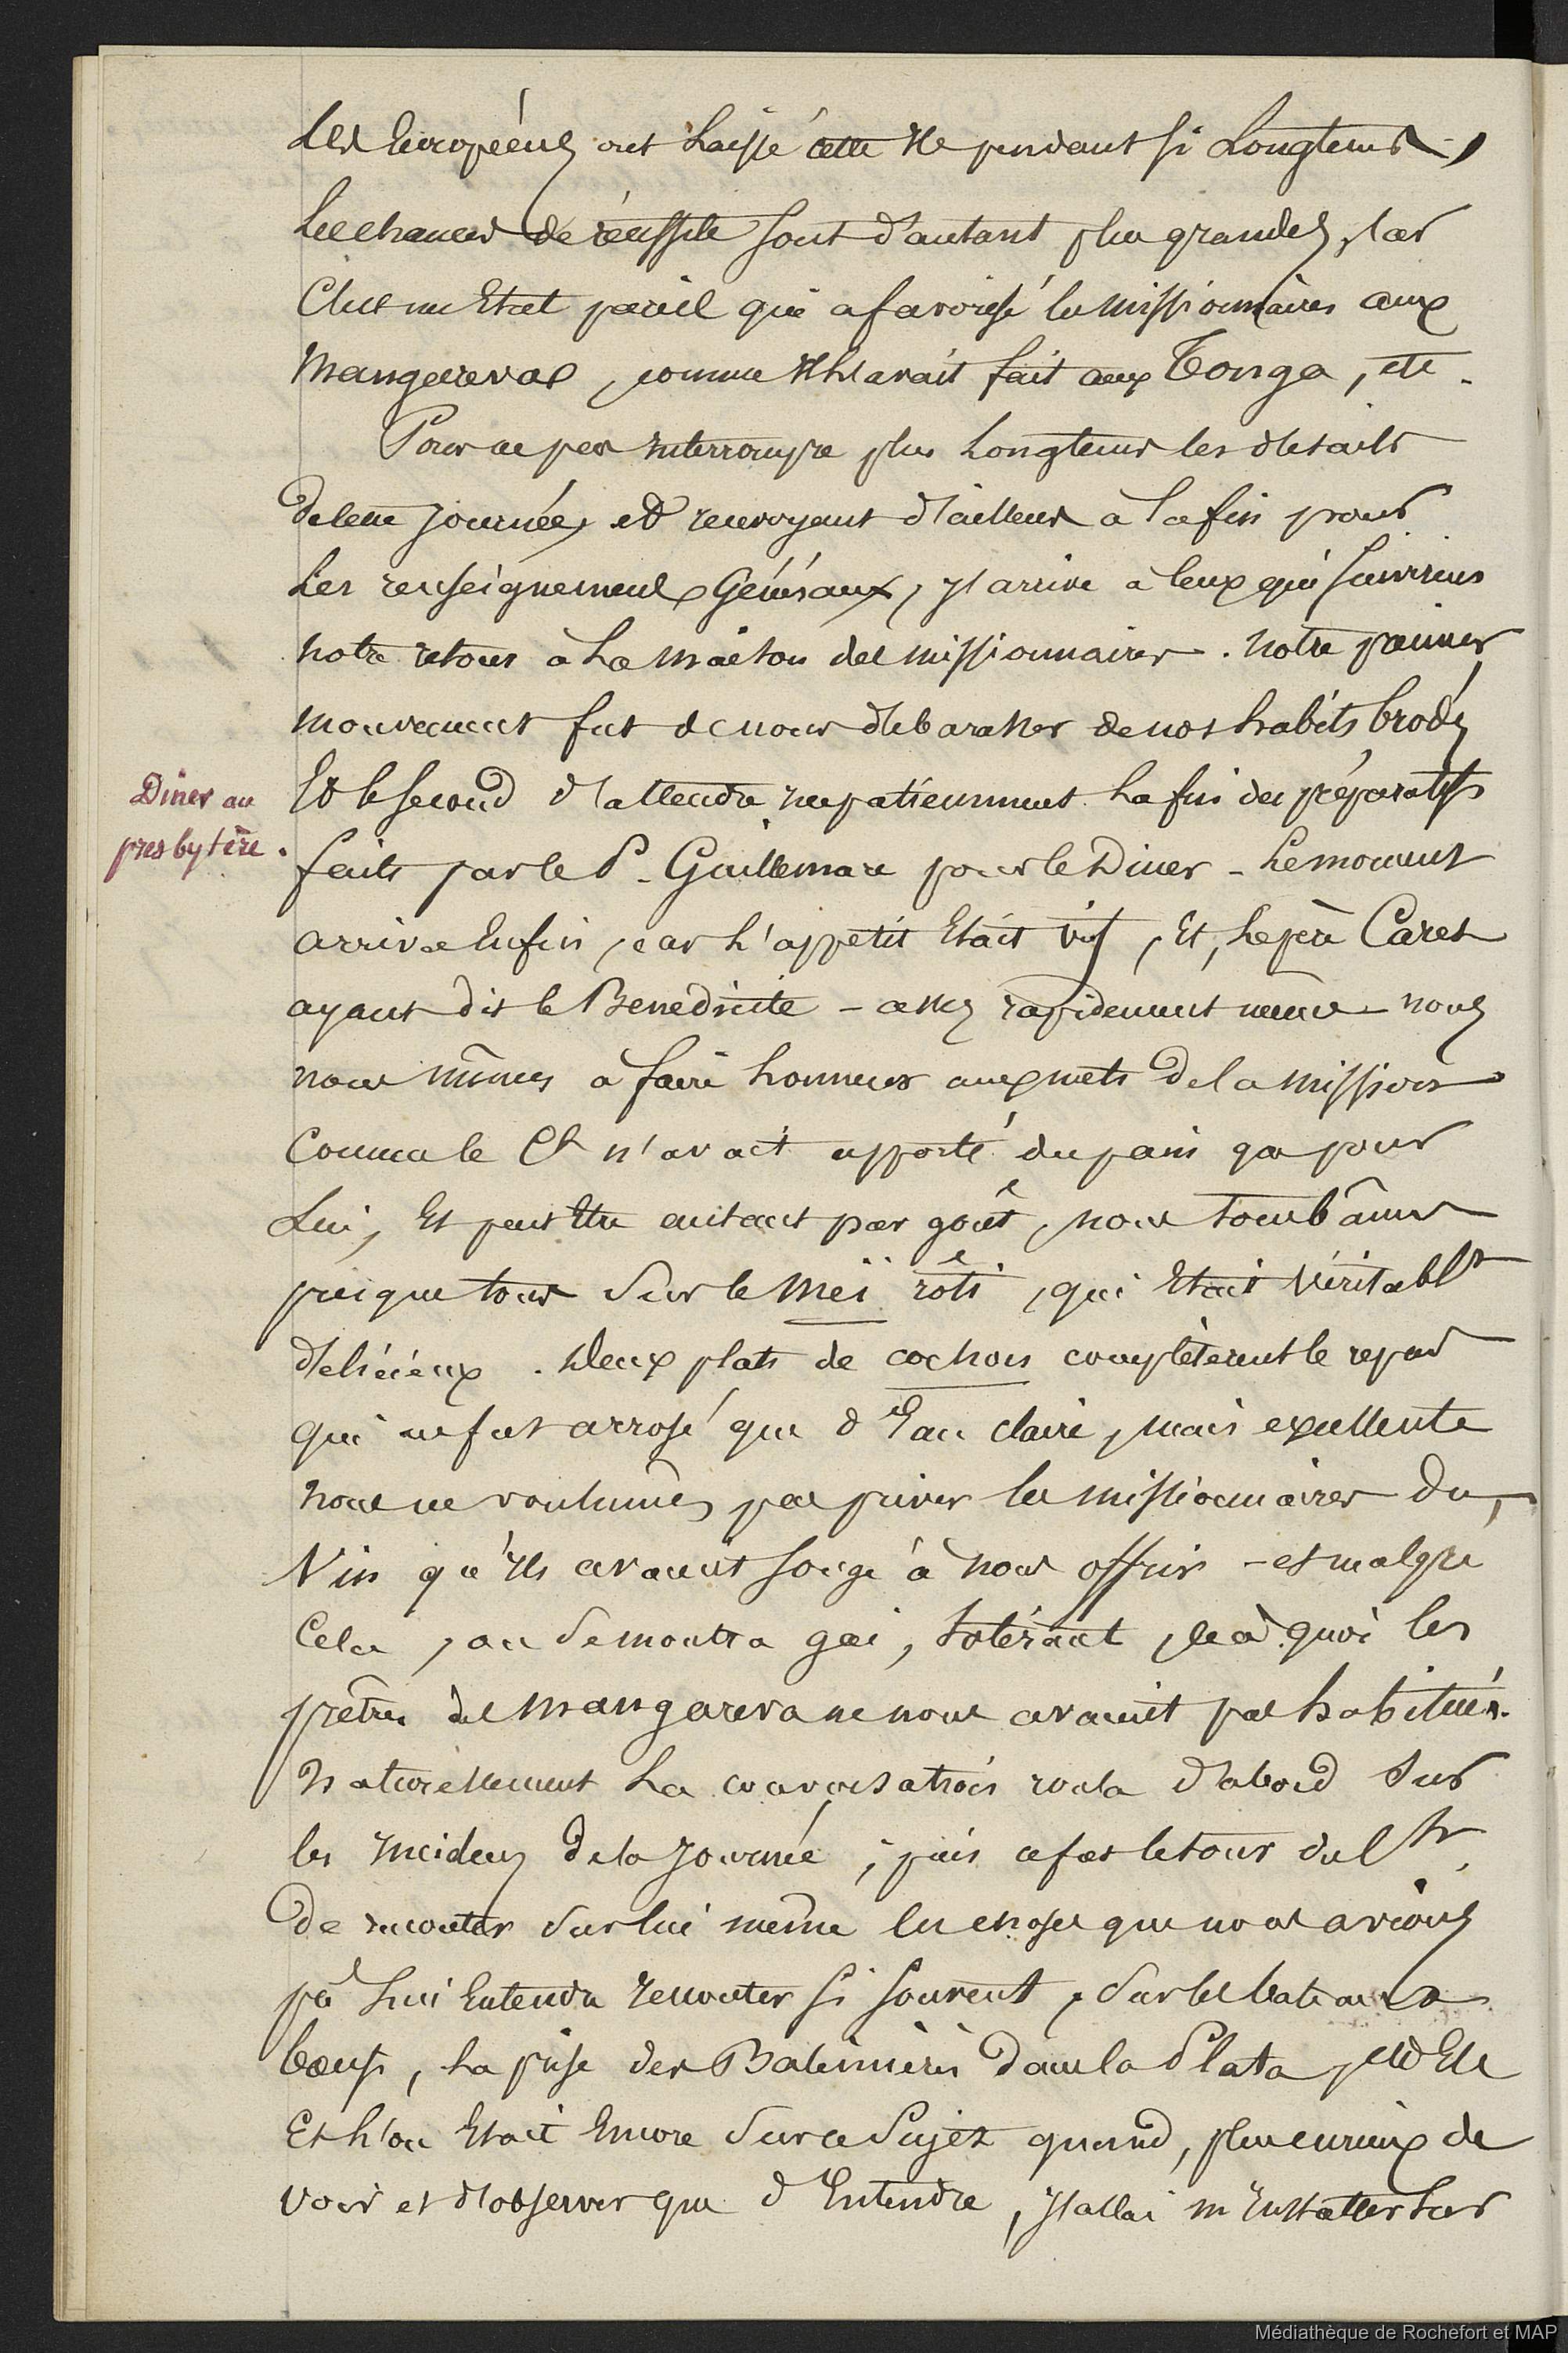 Les Européens ont laissé cette Ile pendant si Longtems,
Les chances de réussite sont d'autant plus grandes, car
C'est un Etat pareil qui a favorisé les missionnaires aux
Mangareva, comme Il l'avait fait aux Tonga, etc.
Pour ne pas interrompre plus Longtems les détails
de cette journée, et renvoyant d'ailleurs à la fin pour
Les renseignements Généraux, j'arrive à ceux qui suivirent
notre retour à La maison des missionnaires. notre premier
mouvement fut de nous débarasser de nos habits brodés
Et le second d'attendre impatiemment La fin des préparatifs
Dîner au
presbytère.
faits par le P. Guillemare pour le Diner - Le moment
arriva Enfin, car L'appetit Etait vif, Et, Le père Caret
ayant dit le Benedicite - assez rapidement même - nous
nous mîmes à faire honneur aux mets de la mission
Comme le Ct n'avait apporté du pain que pour
Lui, Et peut Etre autant par goût, nous tombâmes
presque tous sur le meï rôti, qui Etait véritablt
délicieux. Deux plats de cochon complètèrent le repas
qui ne fut arrosé que d'Eau claire, mais excellente
nous ne voulumes pas priver les missionnaires du
Vin qu'ils avaient songé à nous offrir - et malgré
Cela, on se montra gai, tolérant, ce à quoi les
prêtres de Mangareva ne nous avaient pas habitués.
Naturellement La conversation roula d'abord sur
les incidens de la journée; puis ce fut le tour du Ct
de raconter sur lui même les choses que nous avions
pû Lui Entendre raconter si souvent, sur les bateaux
boeufs, La prise des Baleinières dans la Plata, etc Etc
Et L'on Etait Encore sur ce sujet quand, plus curieux de
voir et d'observer que d'Entendre, j'allai m'installer sur
Médiathèque de Rochefort et MAP